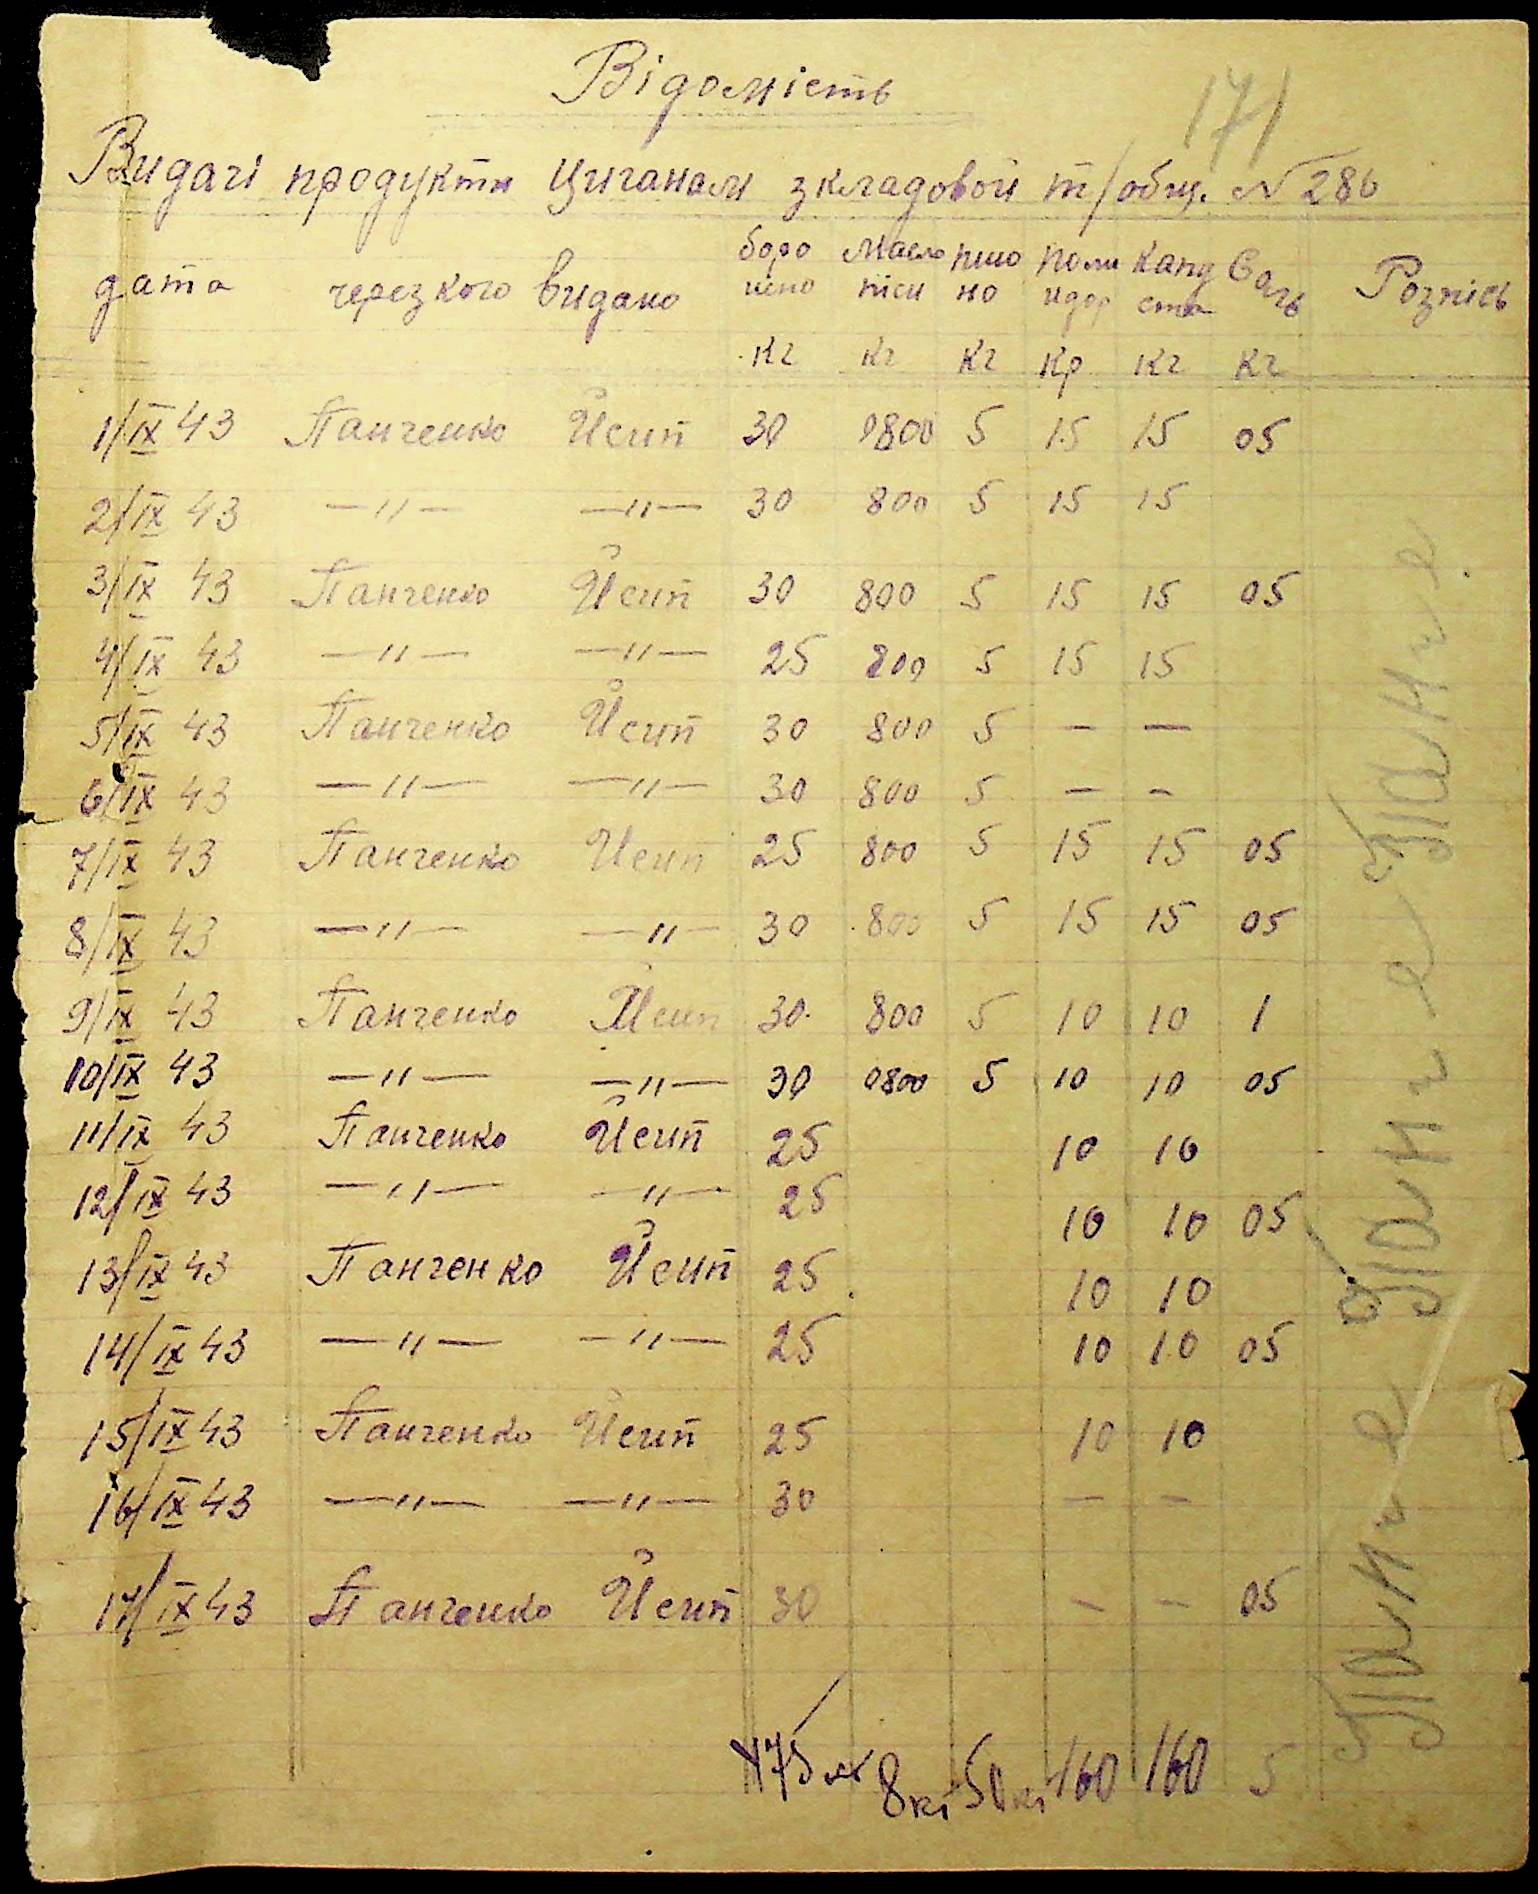 Відомість
171
Видачі продуктн циганам зкладовой т/общ. № 286
дата через кого видано боро шено Масло пісн пшо но поми идор капу ста Саль Розпісь
кг кг кг кр кг кг
1/IX 43 Панченко Йсип 30 0800 5 15 15 05
2/IX 43 —〃— —〃— 30 800 5 15 15
3/IX 43 Панченко Йсип 30 800 5 15 15 05
4/IX 43 —〃— —〃— 25 800 5 15 15
5/IX 43 Панченко Йсип 30 800 5 — —
6/IX 43 —〃— —〃— 30 800 5 — —
7/IX 43 Панченко Исип 25 800 5 15 15 05
8/IX 43 —〃— —〃— 30 800 5 15 15 05
9/IX 43 Панченко Йсип 30 800 5 10 10 1
10/IX 43 —〃— —〃— 30 0800 5 10 10 05
11/IX 43 Панченко Йсип 25 10 10
12/IX 43 —〃— —〃— 25 10 10 05
13/IX 43 Панченко Йсип 25 10 10
14/IX 43 —〃— —〃— 25 10 10 05
15/IX 43 Панченко Йсип 25 10 10
16/IX 43 —〃— —〃— 30 — —
17/IX 43 Панченко Йсип 30 — — 05
475 кг 8кг 50кг 160 160 5